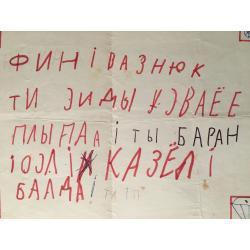 ФИНІВАЗНЮК
ТИ ЭИДЫ УЭВАЕЕ
ПЛЫПАа І ТЫ БАРАН
ІОЭЛІХ КАЗЁЛ І
БАЛДА! ТИ ТП